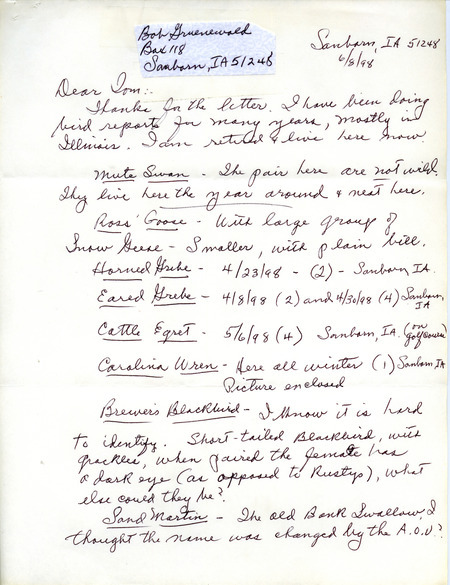 Bob Gruenewald
Box 118
Sanborn, IA 51248
Sanborn, IA 51248
6/8/98
Dear Tom:
Thanks for the letter. I have been doing
bird reports for many years, mostly in
Illinois. I am retired & live here now.
Mute Swan - The pair here are not wild.
They live here the year around & nest here.
Ross' Goose - With large group of
Snow Geese - Smaller, with plain bill.
Horned Grebe - 4/23/98 - (2) - Sanborn, IA.
Eared Grebe - 4/8/98 (2) and 4/30/98 (4) Sanborn,
IA
Cattle Egret - 5/6/98 (4) Sanborn, IA. (on
golf course)
Carolina Wren - Here all winter (1) Sanborn, IA
Picture enclosed
Brewer's Blackbird - I know it is hard
to identify. Short-tailed Blackbird, with
grackles, when paired the female has
a dark eye (as opposed to Rustys), what
else could they be?
Sand Martin - The old Bank Swallow I
thought the name was changed by the A.O.U.?